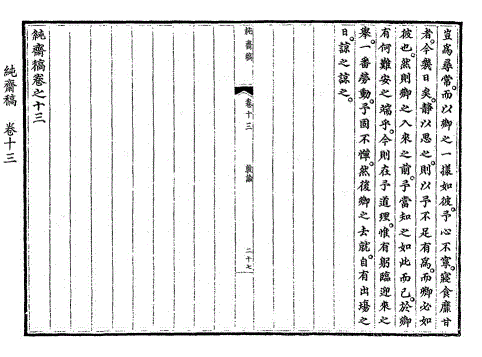 豈爲尋常而以卿之一樣如彼予心不寧寢食靡甘
者今幾日矣靜以思之則以予不足有爲而卿必如
彼也然則卿之入來之前予當知之如此而已於卿
有何難安之端乎今則在予道理惟有躬臨迎來之
來一番勞動予固不憚然後卿之去就自有出場之
日諒之諒之
純齋稿
卷十三
敦諭
二十七
純齋稿卷之十三
純齋稿 卷十三